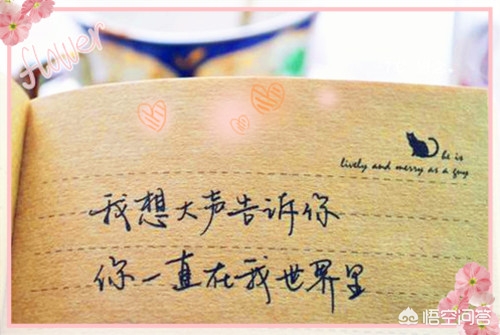 flower
he is
lively and merry as a guy
我想大声告诉你
你一直在我世界里
悟空问答